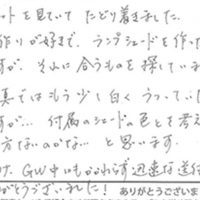 ットを見ていて たどり着きました。
作りが好きで、ランプシェードを作った
すが、それに合うものを探していま
真ではもう少し白く うつってい
すが… 付属のシェードの色とを考え
方ないのかな… と思います。
け、GW中にもかかわらず迅速な送付
がとうございました！
ありがとうございま